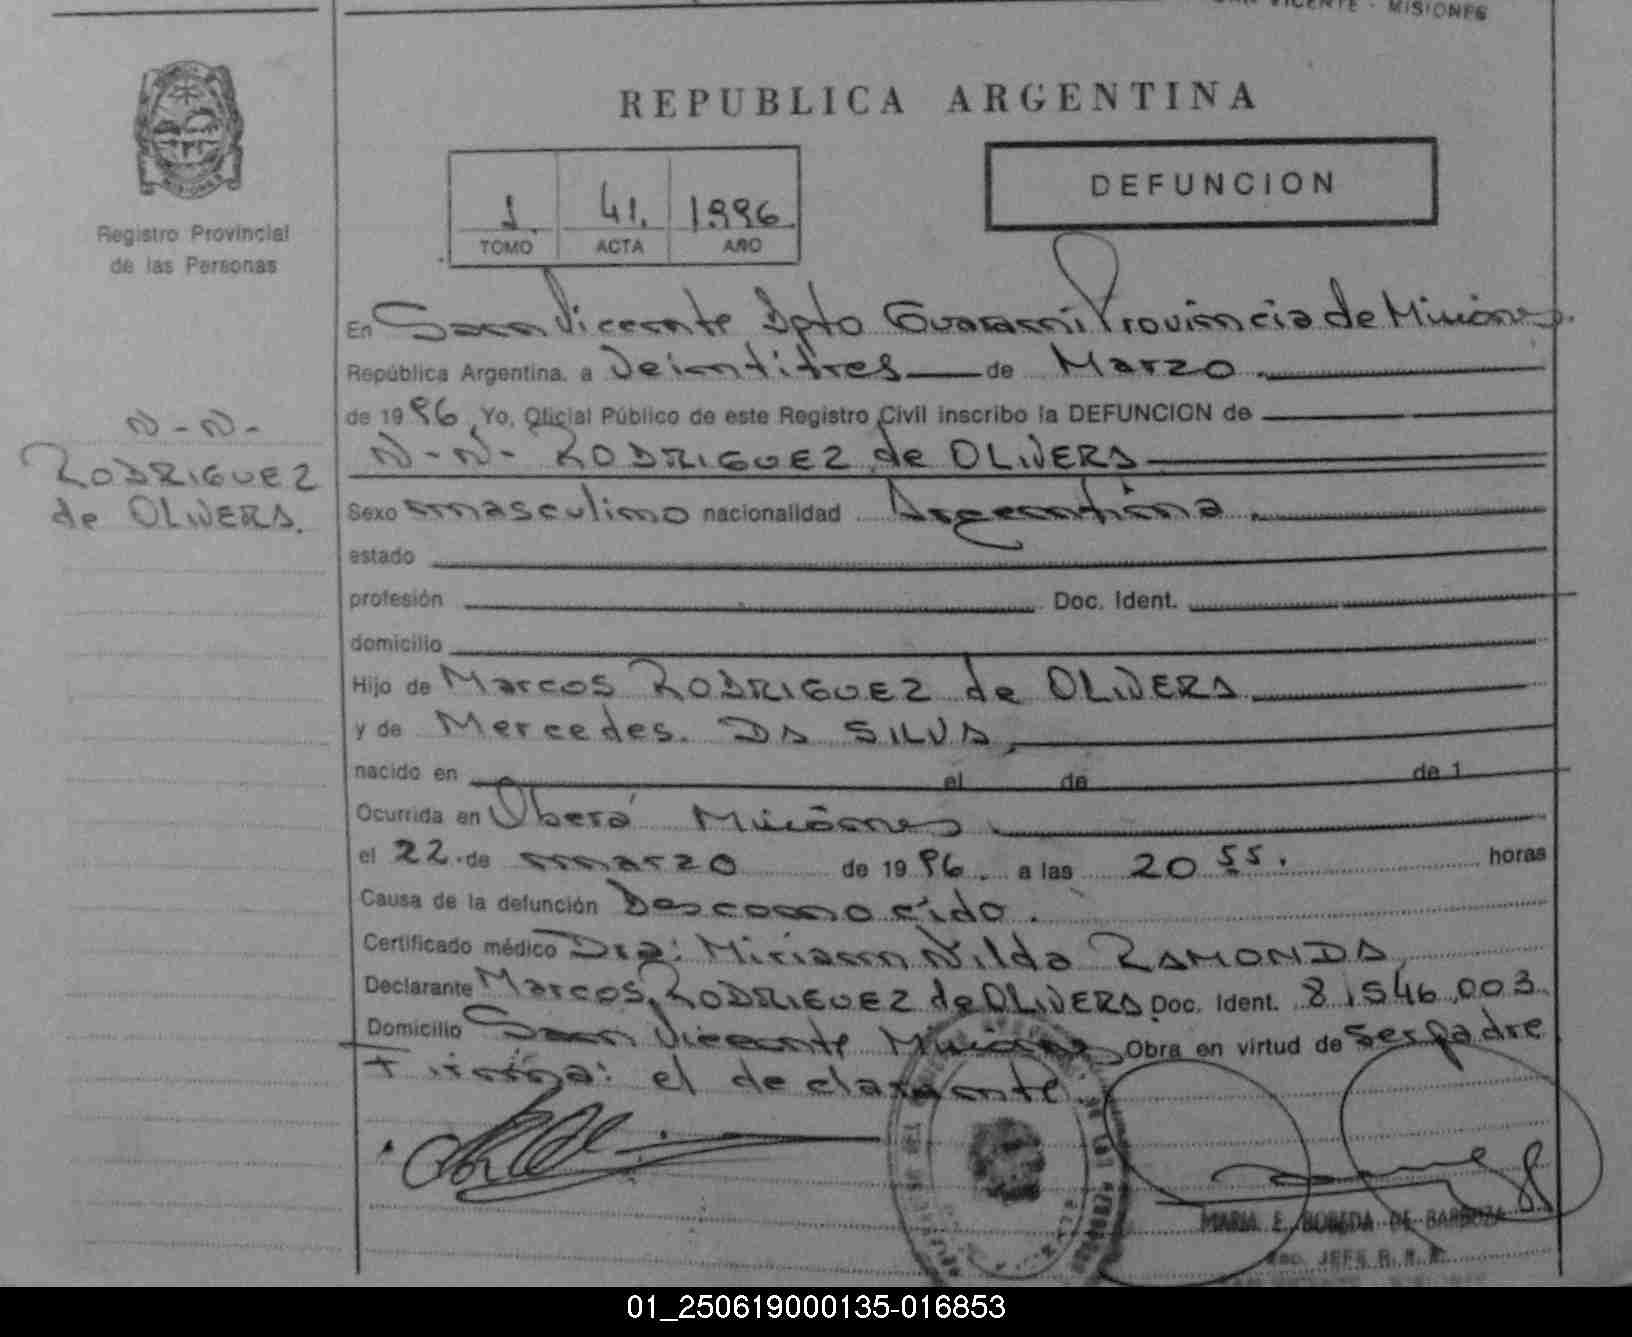 SAN VICENTE - MISIONES
REPUBLICA ARGENTINA
DEFUNCION
1 41. 1996
TOMO ACTA AÑO
Registro Provincial
de las Personas
En San Vicente Dpto Guaraní Provincia de Misiones.
República Argentina, a Veintitres de Marzo
de 1996, Yo, Oficial Público de este Registro Civil inscribo la DEFUNCION de
N-N- RODRIGUEZ de OLIVERA
N-N-
RODRIGUEZ
de OLIVERA.
Sexo masculino nacionalidad Argentina
estado
profesión Doc. Ident.
domicilio
Hijo de Marcos RODRIGUEZ de OLIVERA
y de Mercedes. DA SILVA,
nacido en el de de 1
Ocurrida en Oberá Misiones
el 22 de marzo de 1996. a las 20 55. horas
Causa de la defunción Desconocido.
Certificado médico Dra: Miriam Nilda RAMONDA,
Declarante Marcos RODRIGUEZ de OLIVERA Doc. Ident. 8.546.003
Domicilio San Vicente Misiones Obra en virtud de ser padre
Firma: el declarante.
MARIA E. BOBEDA DE BARBOZA
JEFE R.
01_250619000135-016853